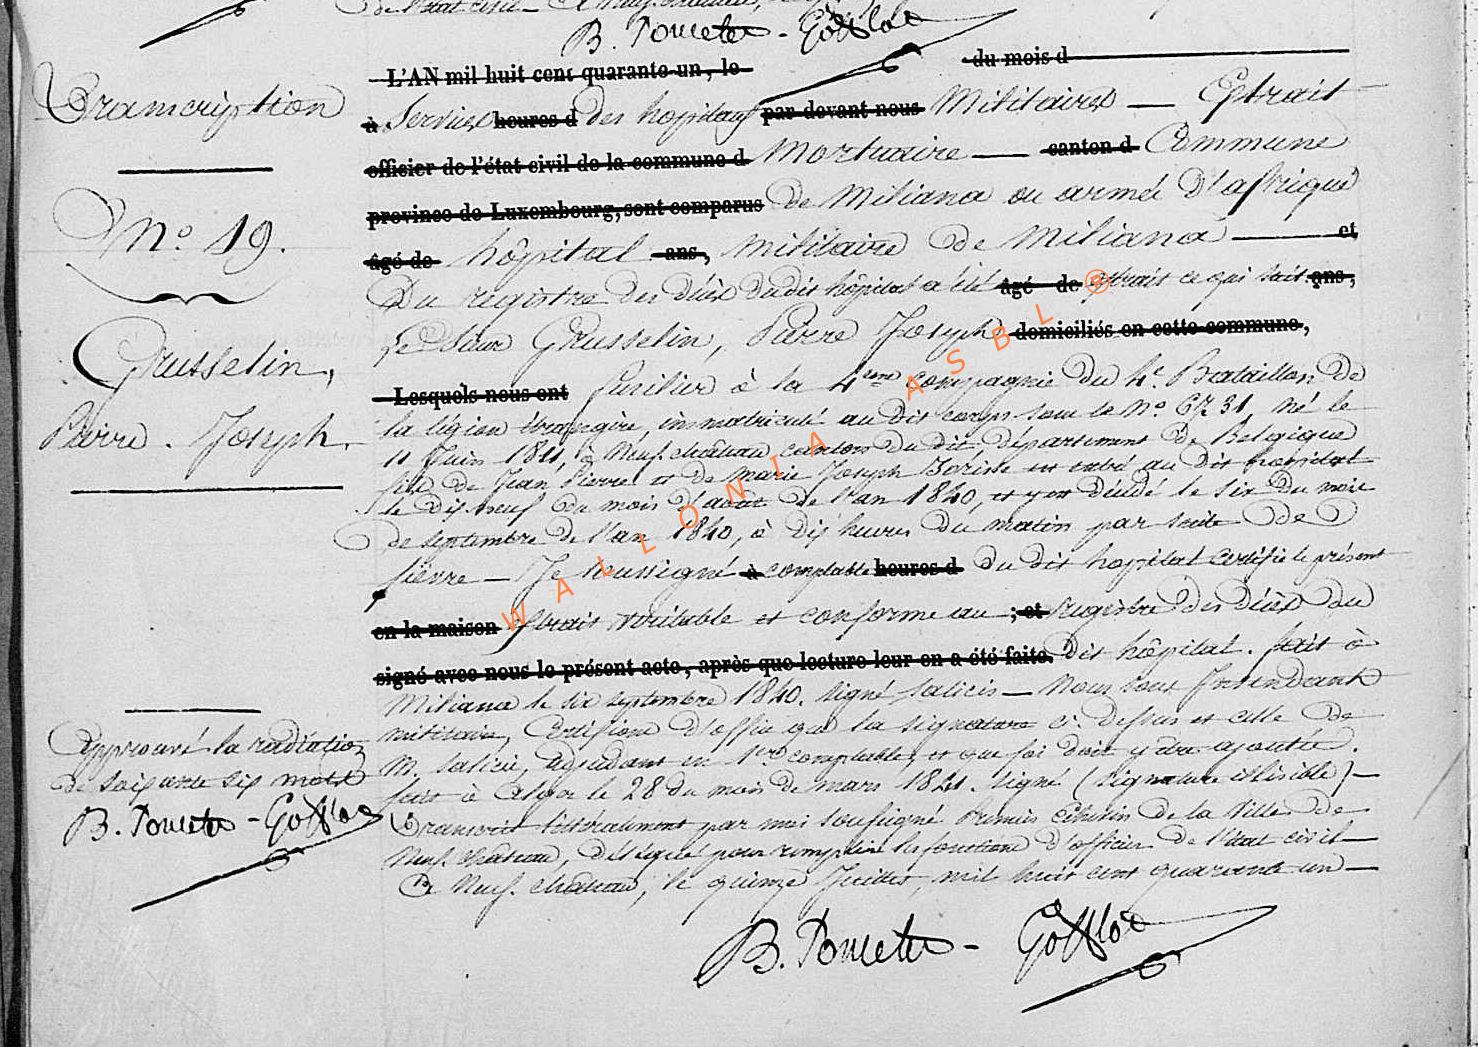 de l'état civil — à Neufchateau,
B. Poncelet - Gofflot
L'AN mil huit cent quarante-un, le du mois d
Transcription
à Service heures d des hopitaux par devant nous Militaires — Extrait
officier de l'état civil de la commune d Mortuaire — canton d Commune
province de Luxembourg, sont comparus de Miliana ou armée d'afrique
N° 19.
âgé de hôpital ans, militaire de Miliana — et
Du registre des décès dudit hôpital a été âgé de extrait ce qui suit. ans,
Le Sieur Grusselin, Pierre Joseph domiciliés en cette commune,
Grusselin,
Pierre - Joseph.
Lesquels nous ont fusilier à la 4eme compagnie du 4e Bataillon de
la légion étrangère, immatriculé au dit corps sous le N° 6731, né le
11 Juin 1811, à Neufchâteau canton du dit, département de Belgique
fils de Jean Pierre et de Marie Joseph est entré au dit hôpital
le dix neuf du mois d'août de l'an 1840, et y est décédé le six du mois
de septembre de l'an 1840, à dix heures du matin par suite de
fièvre — Je soussigné à comptable heures d du dit hopital certifie le présent
en la maison extrait véritable et conforme au ; et registre des décès du
signé avec nous le présent acte, après que lecture leur en a été faite. dit hôpital. fait à
Miliana le six septembre 1840. signé Salicis — Nous sous Intendant
militaire, Certifions d'office que la signature ci-dessus est celle de
M. Salicis, adjudant en 1er comptable, et que foi doit y être ajoutée.
fait à Alger le 28 du mois de mars 1841. signé (signature illisible) —
Transcrit littéralement par moi soussigné Premier Echevin de la Ville de
Neufchâteau, délégué pour remplir les fonctions d'officier de l'état civil —
à Neufchâteau, le quinze Juillet, mil huit cent quarante un —
Approuvé la radiation
de soixante six mots
B. Poncelet - Gofflot
B. Poncelet - Gofflot
WALLONIA ASBL ®